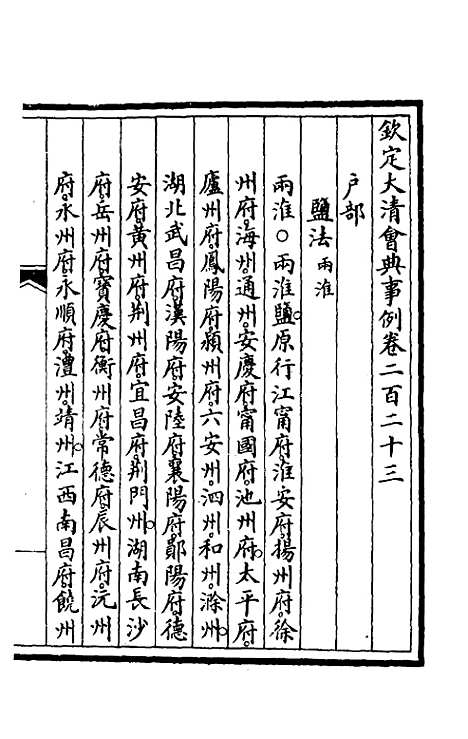 欽定大清會典事例卷二百二十三
戶部
鹽法兩淮
兩淮○兩淮鹽原行江甯府淮安府揚州府徐
州府海州通州安慶府甯國府池州府太平府
廬州府鳳陽府潁州府六安州泗州和州滁州
湖北武昌府漢陽府安陸府襄陽府鄖陽府德
安府黃州府荊州府宜昌府荊門州湖南長沙
府岳州府寶慶府衡州府常德府辰州府沅州
府永州府永順府澧州靖州江西南昌府饒州